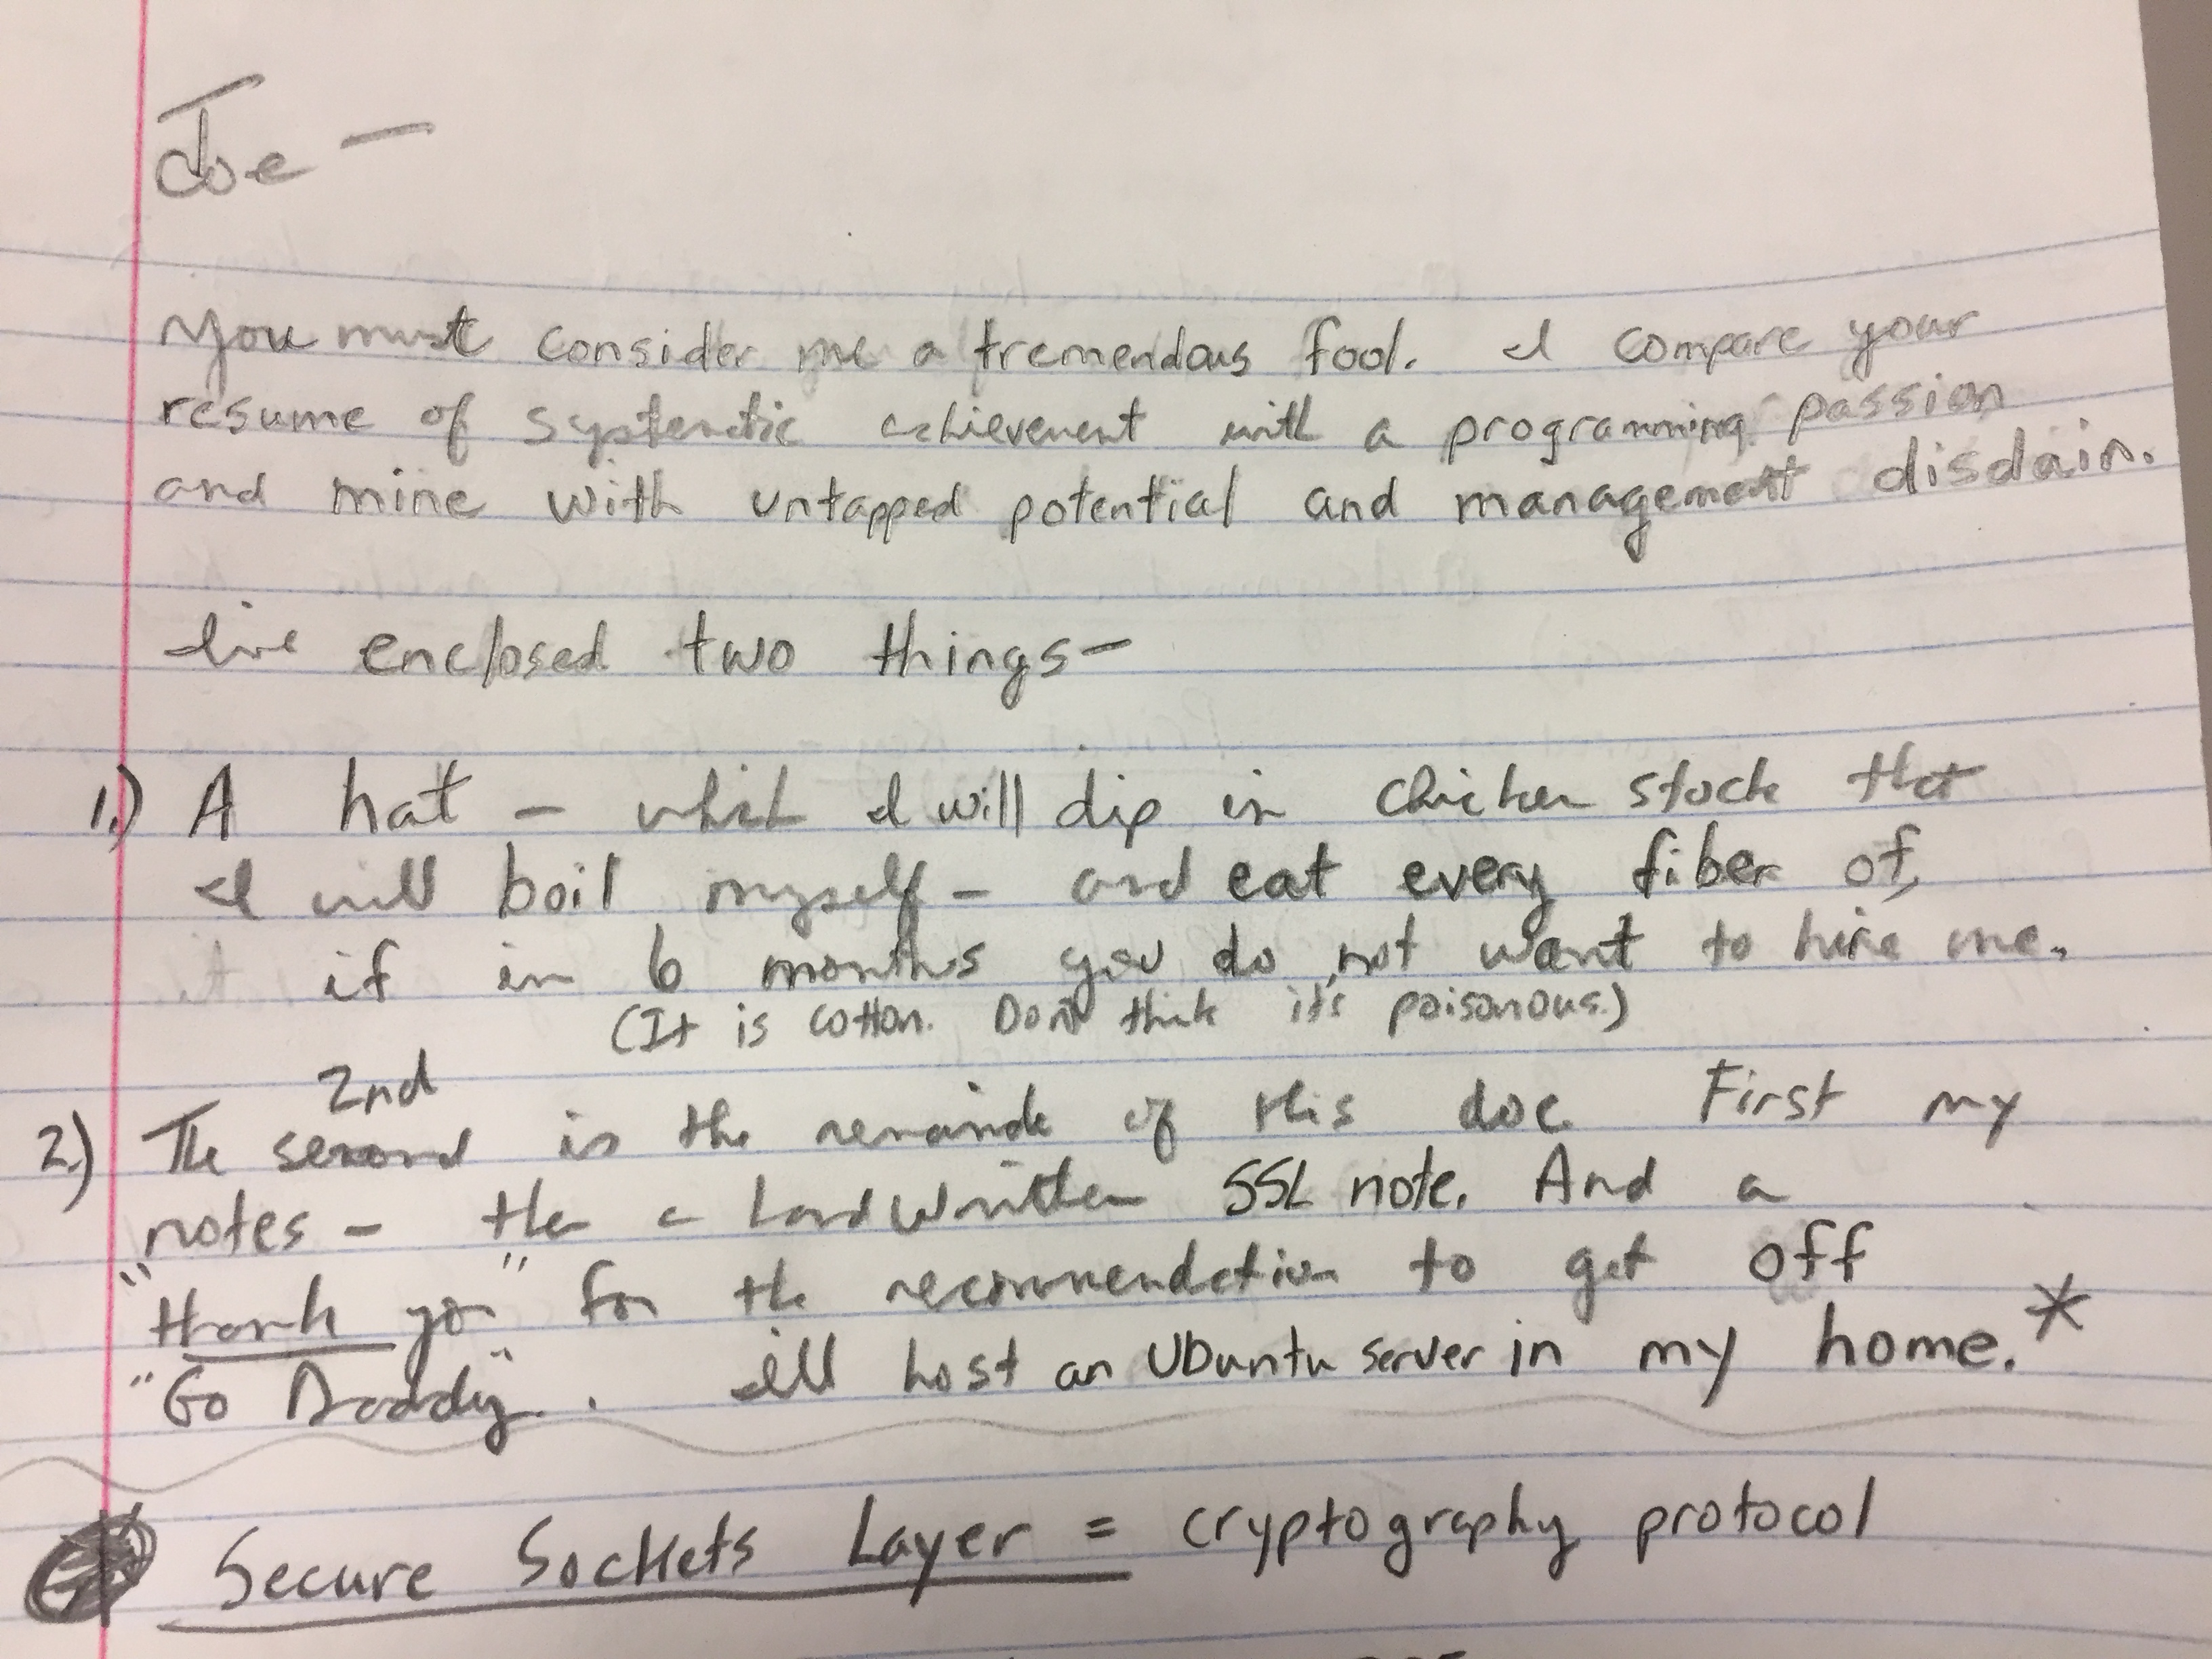 Joe —
You must consider me a tremendous fool. I compare your
resume of systematic achievement with a programming passion
and mine with untapped potential and management disdain.
I've enclosed two things —
1.) A hat — which I will dip in chicken stock that
I will boil myself — and eat every fiber of
it if in 6 months you do not want to hire me.
(It is cotton. Don't think it's poisonous.)
2nd
2.) The second is the remainde of this doc. First my
notes — then a handwritten SSL note. And a
"Thank you" for the recommendation to get off
"Go Daddy". I'll host an Ubuntu server in my home.*
Secure Sockets Layer = cryptography protocol